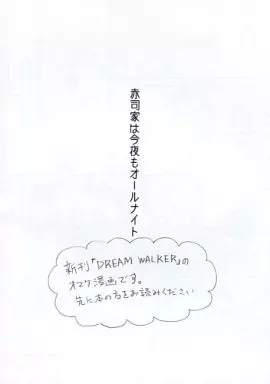 赤司家は今夜もオールナイト
新刊「DREAM WALKER」の
オマケ漫画です。
先に本の方をお読みください